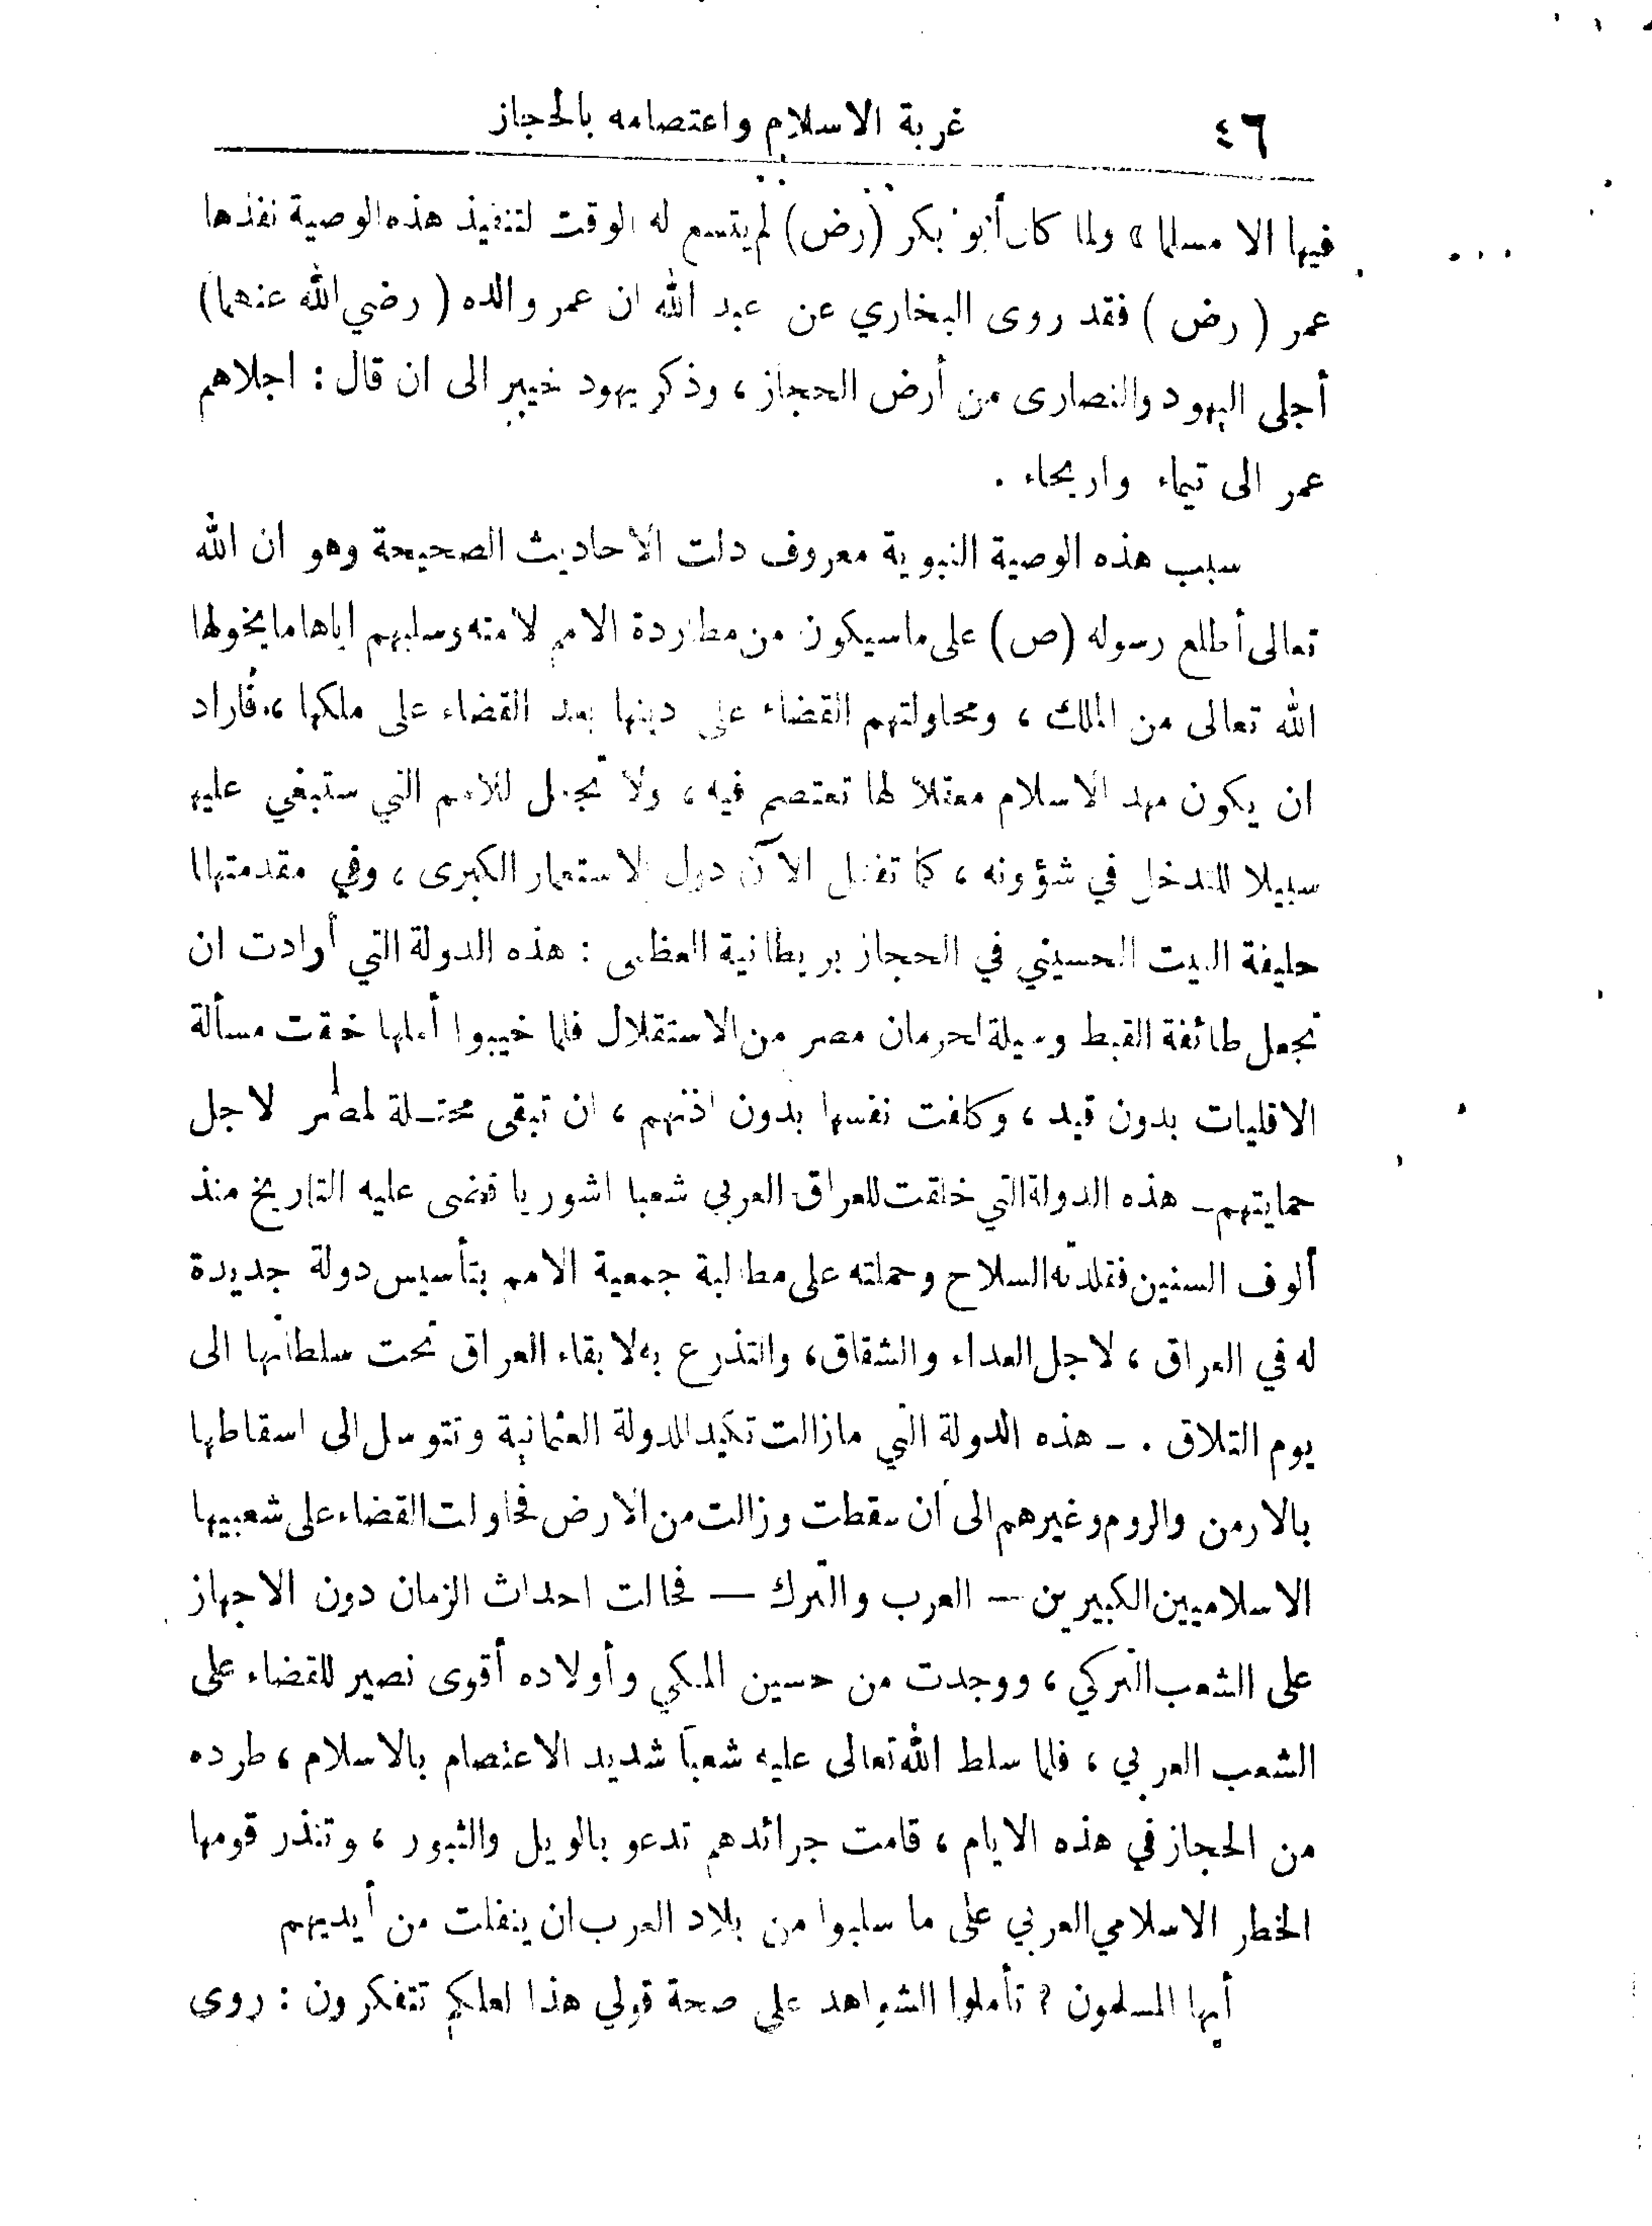 ٤٦ غربة الاسلام واعتصامه بالحجاز
فيها الا مسلما » ولما كان أبو بكر (رض) لم يتسع له الوقت لتنفيذ هذه الوصية نفذها
عمر ( رض ) فقد روى البخاري عن عبد الله ان عمر والده ( رضي الله عنهما)
أجلى اليهود والنصارى من أرض الحجاز ، وذكر يهود خيبر الى ان قال : اجلاهم
عمر الى تيماء واريحاء .
سبب هذه الوصية النبوية معروف دلت الاحاديث الصحيحة وهو ان الله
تعالى أطلع رسوله (ص) على ما سيكون من مطاردة الامم لامته وسلبهم اياها ما يخولها
الله تعالى من الملك ، ومحاولتهم القضاء على دينها بعد القضاء على ملكها ، فاراد
ان يكون مهد الاسلام معقلا لها تعتصم فيه ، ولا تجعل للامم التي ستبغي عليه
سبيلا للتدخل في شؤونه ، كما تفعل الآن دول الاستعمار الكبرى ، وفي مقدمتها
حليفة البيت الحسيني في الحجاز بريطانية العظمى : هذه الدولة التي أرادت ان
تجعل طائفة القبط وسيلة لحرمان مصر من الاستقلال فلما خيبوا أملها خقت مسألة
الاقليات بدون قيد ، وكلفت نفسها بدون اذنهم ، ان تبقى محتلة لمصر لاجل
حمايتهم ـ هذه الدولة التي خلقت للعراق العربي شعبا اشوريا قضى عليه التاريخ منذ
ألوف السنين فقلدته السلاح وحملته على مطالبة جمعية الامم بتأسيس دولة جديدة
له في العراق ، لاجل العداء والشقاق ، والتذرع به لا بقاء العراق تحت سلطانها الى
يوم التلاق . ـ هذه الدولة التي مازالت تكيد للدولة العثمانية وتتوسل الى اسقاطها
بالارمن والروم وغيرهم الى أن سقطت وزالت من الارض فحاولت القضاء على شعبيها
الاسلاميين الكبيرين — العرب والترك — فحالت احداث الزمان دون الاجهاز
على الشعب التركي ، ووجدت من حسين المكي وأولاده أقوى نصير للقضاء على
الشعب العربي ، فلما سلط الله تعالى عليه شعبا شديد الاعتصام بالاسلام ، طرده
من الحجاز في هذه الايام ، قامت جرائدهم تدعو بالويل والثبور ، وتنذر قومها
الخطر الاسلامي العربي على ما سلبوا من بلاد العرب ان ينفلت من أيديهم
أيها المسلمون ? تأملوا الشواهد على صحة قولي هذا لعلكم تتفكرون : روى